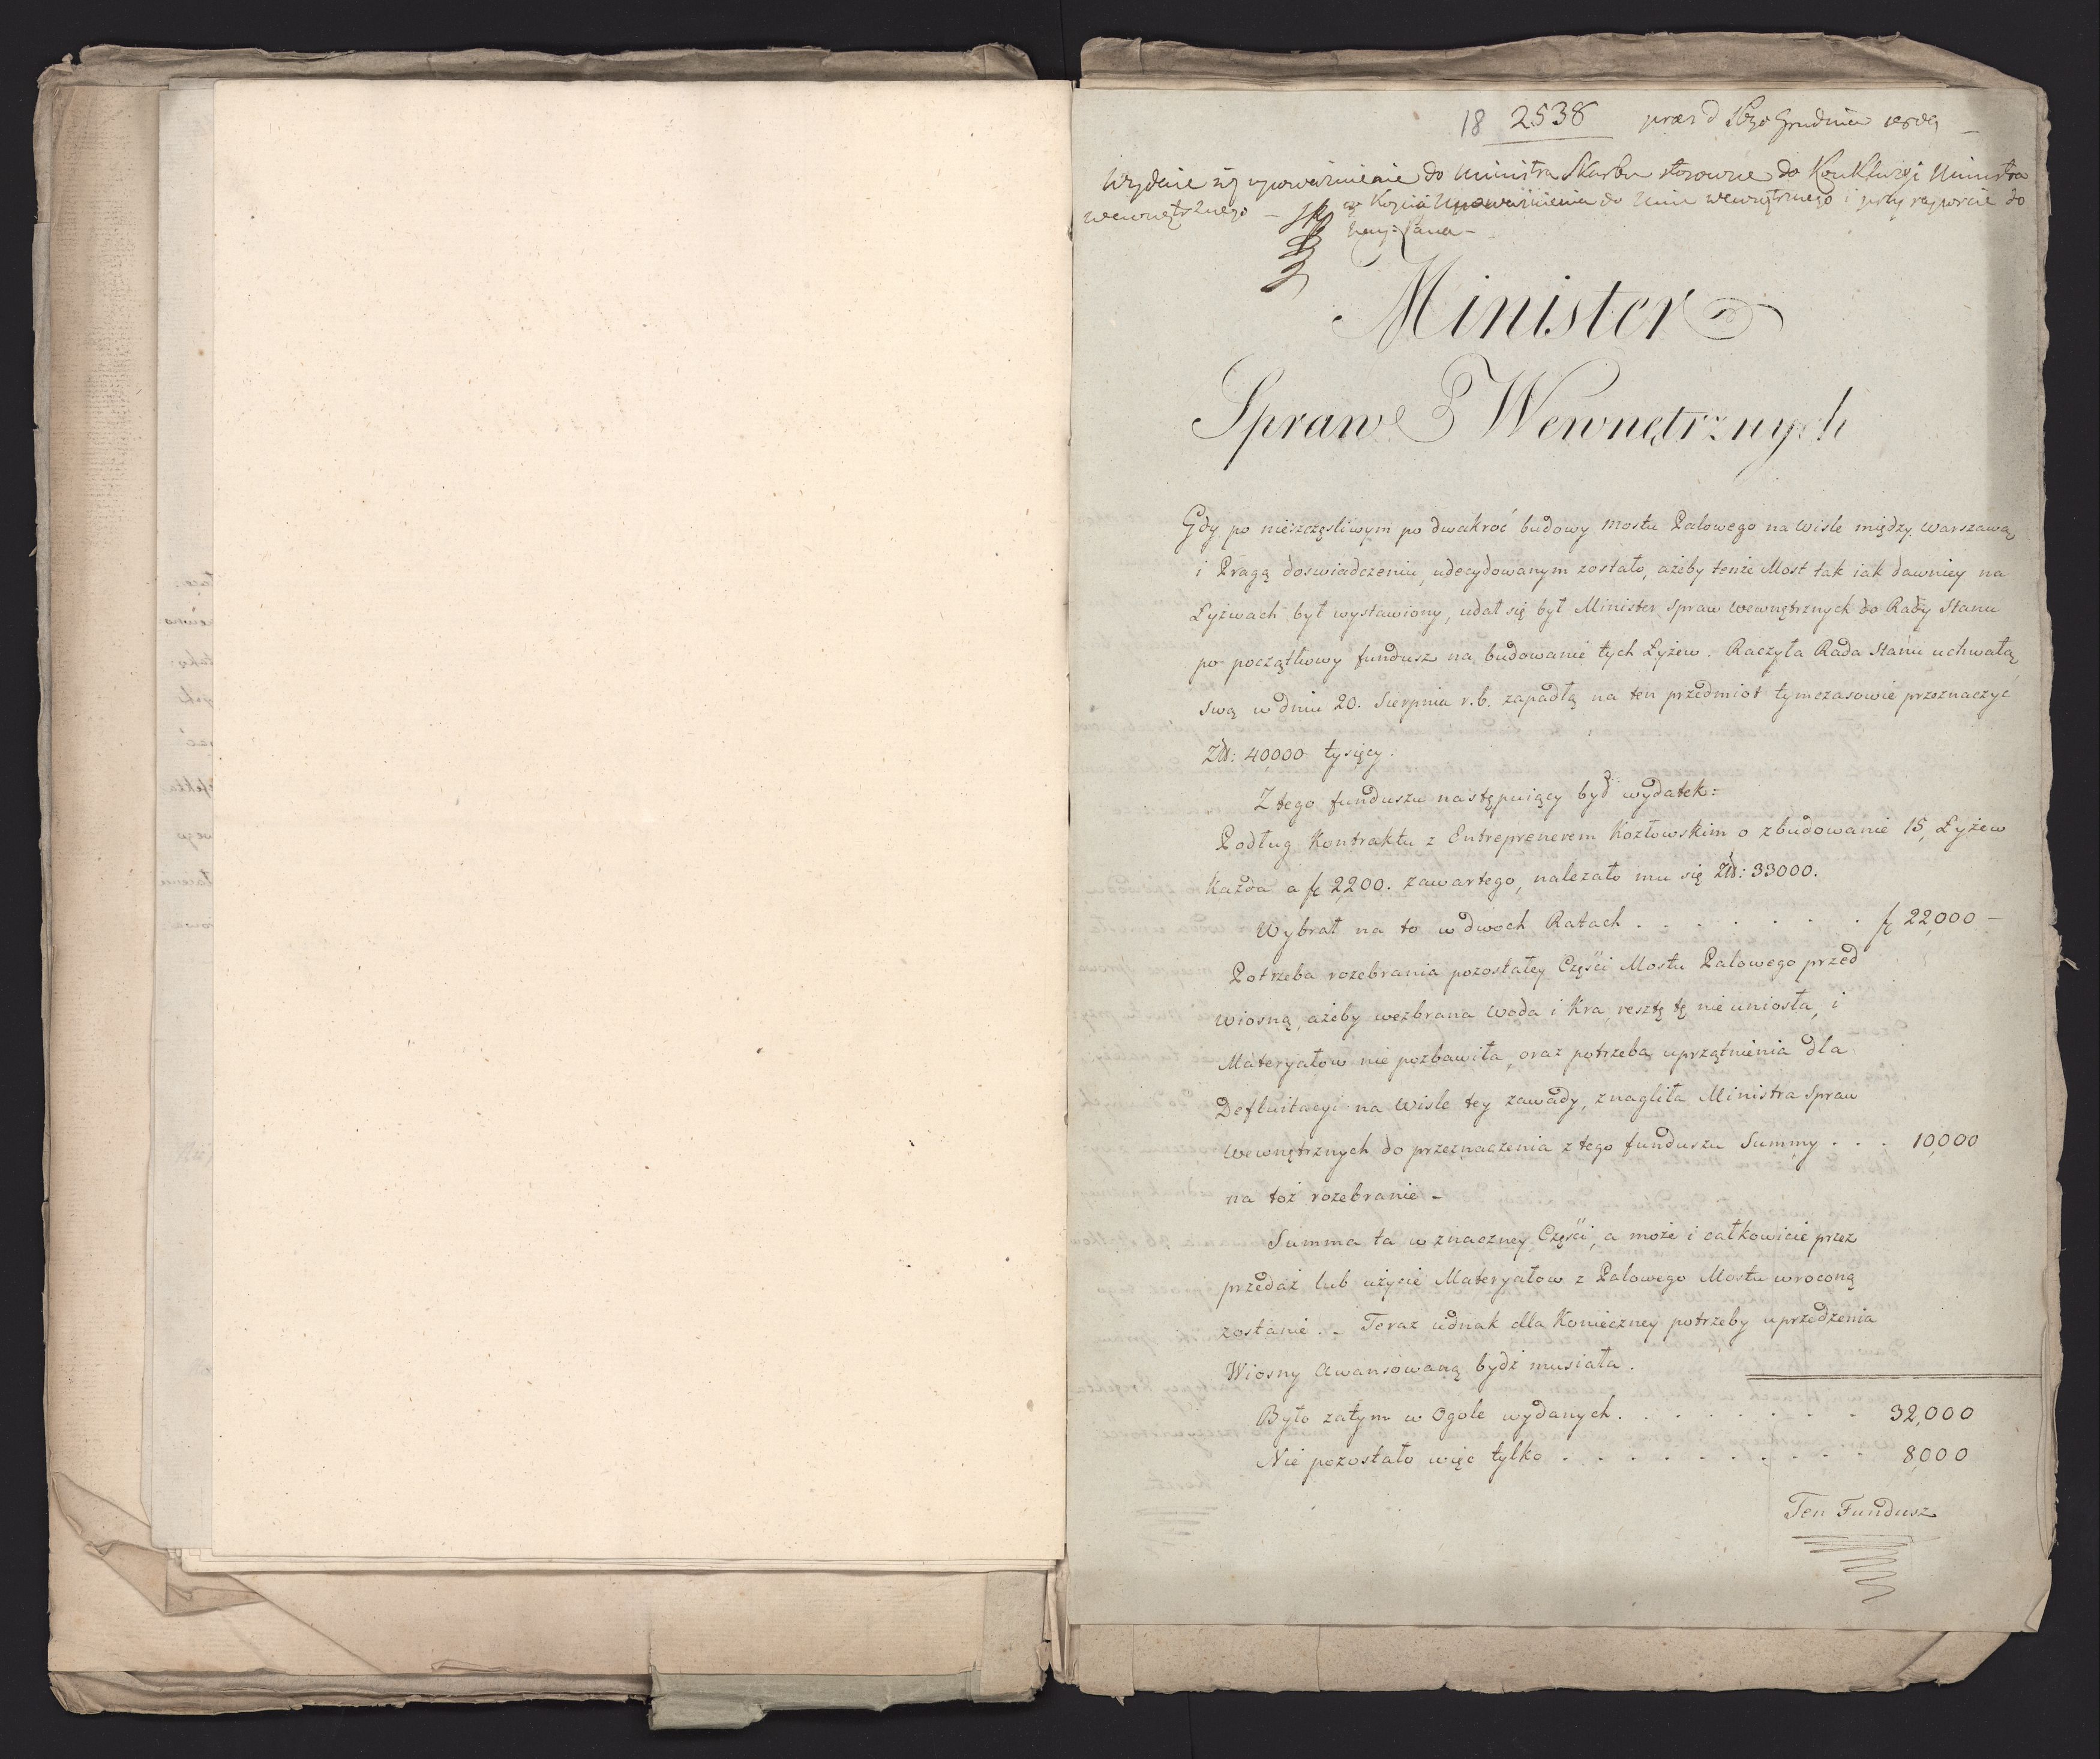 18 2538 præs d Grudnia 1809
Wydaie się upoważnienie do Ministra Skarbu stosowne do Konkluzyi Ministra
wewnętrznego – Kopiia Upoważnienia do Min: wewnętrznego i przy raporcie do
Pana –
Minister
Spraw Wewnętrznych
Gdy po nieszczęsliwym po dwakroć budowy Mostu Palowego na Wisle między Warszawą
i Pragą doswiadczeniu, udecydowanym zostało, ażeby tenże Most tak iak dawniey na
Łyżwach był wystawiony, udał się był Minister Spraw Wewnętrznych do Rady Stanu
po początkowy fundusz na budowanie tych Łyżew. Raczyła Rada Stanu uchwałą
swą w dniu 20. Sierpnia r.b. zapadłą na ten przedmiot tymczasowie przeznaczyc
Złł: 40,000 tysięcy.
Z tego funduszu następuiący był wydatek:
Podług Kontraktu z Entreprenerem Kozłowskim o zbudowanie 15, Łyżew
Każda a f 2,200. zawartego, nalezało mu się Złł: 33000.
Wybrał na to w dwoch Ratach . . . . . . . f 22,000 –
Potrzeba rozebrania pozostałey Części Mostu Palowego przed
wiosną, ażeby wezbrana Woda i Kra, resztę tę nie uniosła, i
Materyałow nie pozbawiła, oraz potrzeba uprzątnienia dla
Defluitacyi na Wisle tey zawady, znagliła Ministra Spraw
Wewnętrznych do przeznaczenia z tego funduszu Summy . . . 10,000
na toż rozebranie –
Summa ta w znaczney Części, a może i całkowicie przez
przedaż lub użycie Materyałow z Palowego Mostu wroconą
zostanie. – Teraz iednak dla Konieczney potrzeby uprzedzenia
Wiosny awansowaną bydź musiała.
Było zatym w Ogole wydanych . . . . . . . . 32,000
Nie pozostało więc tylko . . . . . . . . . . 8,000
Ten Fundusz